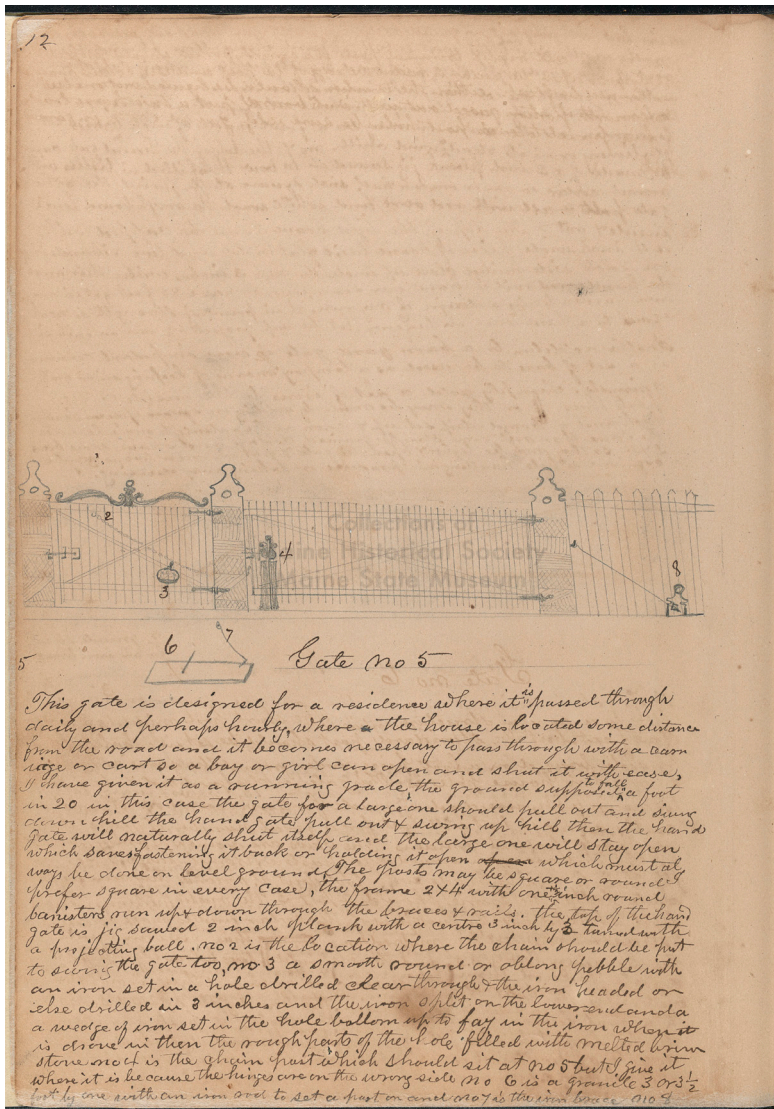 12
2
3
4
8
6 7
5 Gate no 5
This gate is designed for a residence where it is passed through
daily and perhaps hourly, where a the house is located some distance
from the road and it becomes necessary to pass through with a carr
iage or cart so a boy or girl can open and shut it with ease,
I have given it as a running grade the ground supposed to fall a foot
in 20 in this case the gate for a large one should pull out and swing
down hill the hand gate pull out & swing up hill then the hand
gate will naturally shut itself and the large one will stay open
which saves fastening it back or holding it open which must al
ways be done on level ground, The posts may be square or round I
prefer square in every case, the frame 2 x 4 with one inch round
banisters run up & down through the braces & rails. the top of the hand
gate is jig sawed 2 inch plank with a centre 3 inch by 3 turned with
a projecting ball. no 2 is the location where the chain should be put
to swing the gate too, no 3 a smooth round or oblong pebble with
an iron set in a hole drilled clear through & the iron headed or
else drilled in 3 inches and the iron split on the lower end and a
a wedge of iron set in the hole bottom up to fay in the iron when it
is drove in then the rough parts of the hole filled with melted brim
stone no 4 is the chain post which should sit at no 5 but I give it
where it is because the hinges are on the wrong side no 6 is a granite 3 or 3½
foot by one with an iron rod to set a post on and no 7 is the iron brace no 8
Collections of
Maine Historical Society
Maine State Museum